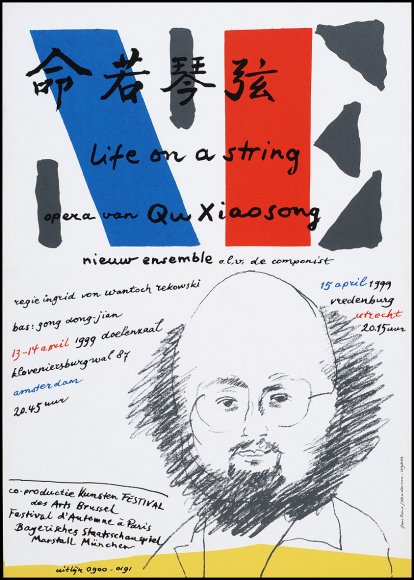 命若琴弦
life on a string
opera van Qu Xiaosong
nieuw ensemble o.l.v. de componist
regie ingrid von wantoch rekowski
bas: gong dong-jian
13-14 april 1999 doelenzaal
kloveniersburgwal 87
amsterdam
20.45 uur
15 april 1999
vredenburg
utrecht
20.15 uur
co-productie Kunsten FESTIVAL
des Arts Brussel
Festival d'Automne à Paris
Bayerisches Staatsschauspiel
Marstall München
uitlijn 0900-0191